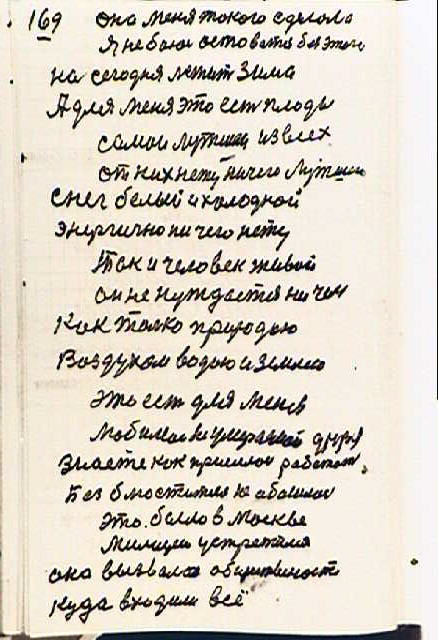 169 она меня токого сделола
Я не боюс остоватся без этого
на сегодня летит Зима
А для меня это ест плоды
самои лутшии из всех
от них нету ничего лутшии
Снег белый и холодной
энергично ничего нету
Так и человек живой
он не нуждается ни чем
Как толко природою
Воздухом водою и Землею
Это ест для меня
любимой не умраной друг
Знаете как пришлос работат
Без
это было в Москве
Милицеи устретила
она вызвала общественост
куда входили всё